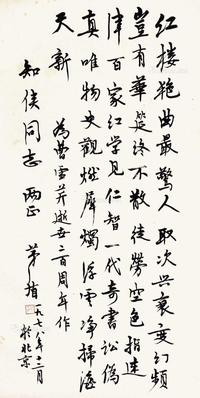 红樓艳曲最驚人取次兴衰变幻频
豈有華筵终不散徒劳空色指迷
津百家红学見仁智一代奇書訟偽
真唯物史觀燃犀燭浮雲净掃海
天新
為曹雪芹逝世二百周年作
知侠同志兩正
茅盾
一九七八年十二月
於北京